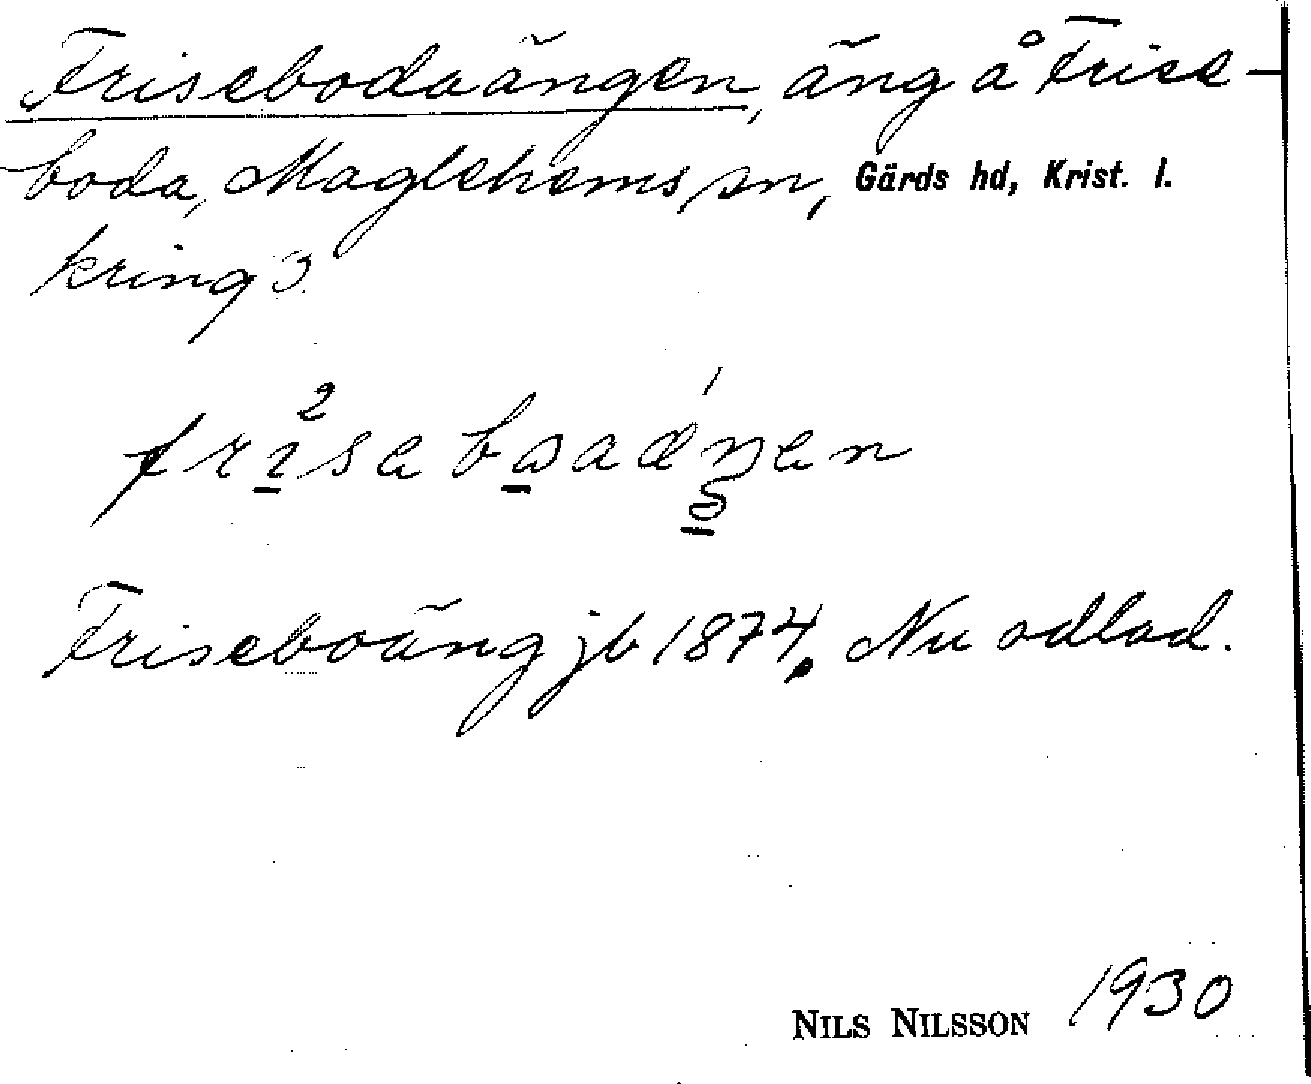 Frisebodaängen, äng å Frise-
boda, Maglehems sn, Gärds hd, Krist. l.
kring 3.
frisebɷaæŋen
Friseboäng jb 1874. Nu odlad.
NILS NILSSON 1930